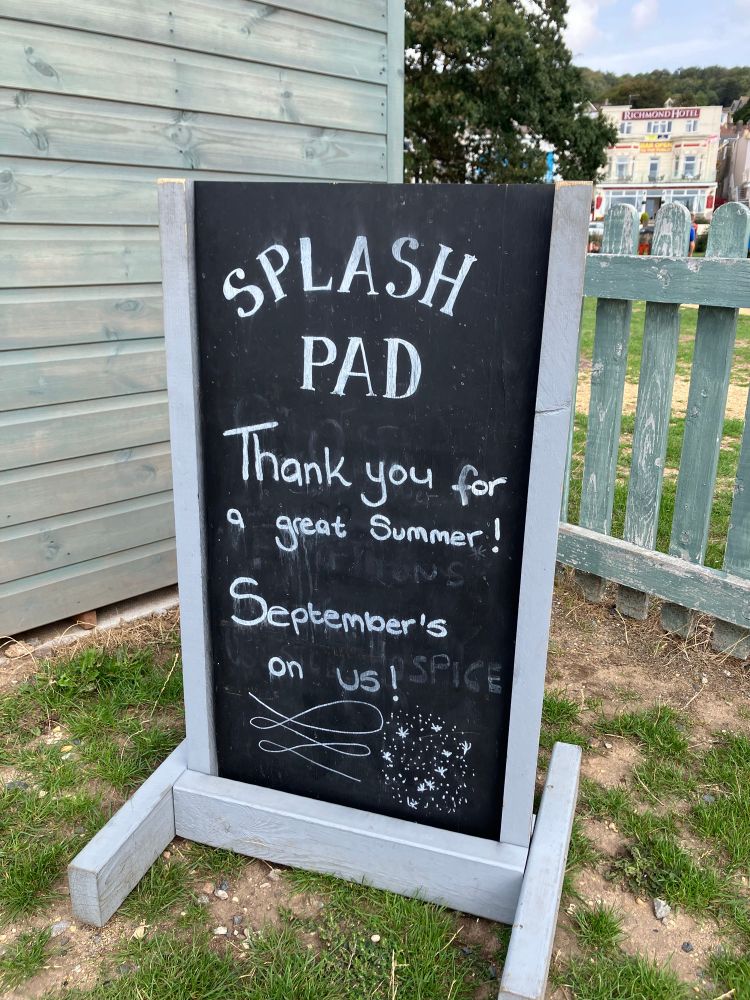 RICHMOND HOTEL
BAR OPEN
SPLASH
PAD
Thank you for
a great Summer!
September's
on us!
SPICE